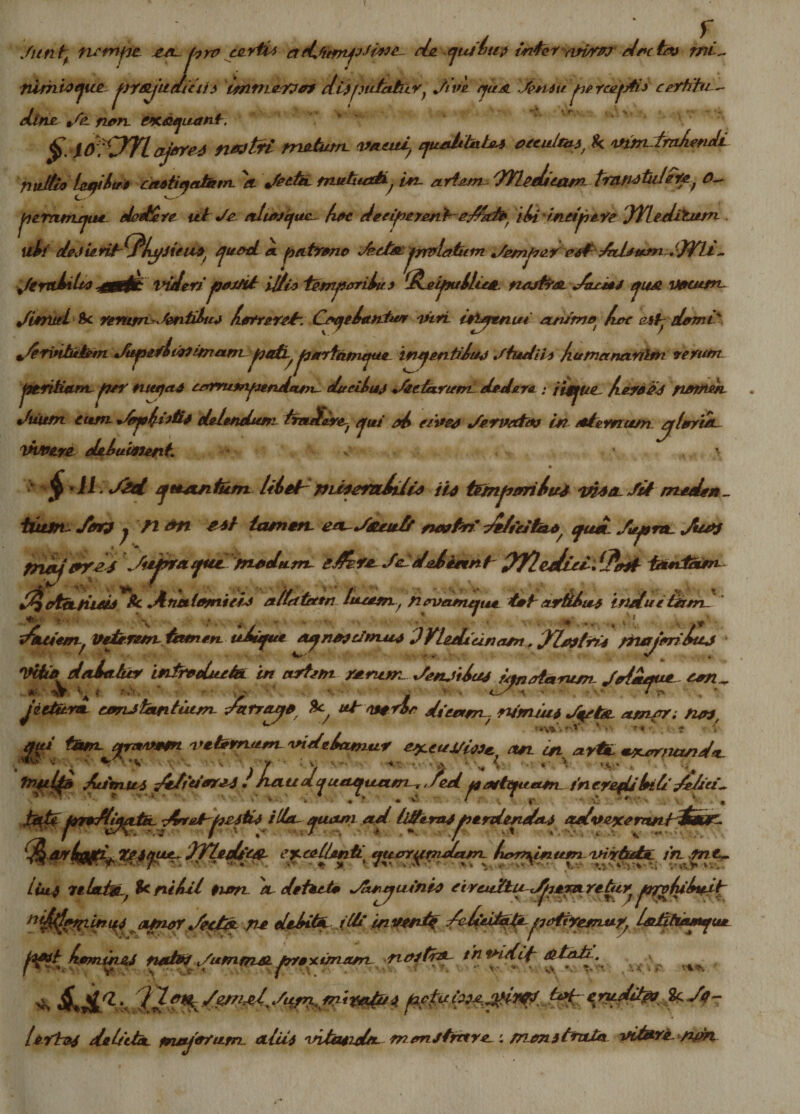 5
sunt, nempe ea pro certis adsumpsisse de quibus inter viros doctos mi-
nimisque præjudiciis immersos disputatur, sive quæ sensu perceptis certitu-
dine se non exæquant.
§. 10. Majores nostri metum vacui, qualitates occultas, & vim trahendi
nullis legibus castigatam a secta mutuati, in artem Medicam transtulere, o-
peramque dedere ut se aliosque hoc deciperent effato, ibi incipere Meditum
ubi desierit Physicus, quod a patrono sectæ prolatum semper est falsum. Mi-
serabilis videri possit illis temporibus Reipublicæ nostræ facies quæ vocum
simul & rerum sentibus horreret. Cogebantur viri ingenui animo, hoc est, domi
servitutem superbissimam pati, partamque ingentibus studiis humanarum rerum
peritiam per nugas corrumpendam ducibus sectarum dedere; iique heroes nomen
suum cum sophistis delendum tradere, qui ob cives servatos in æternum gloria
vivere debuissent.
§. 11. Sed quantum libet miserabilis iis temporibus visa sit meden-
tium sors, non est tamen ea sæculi nostri felicitas, qua supra suos
majores supraque modum efferre se debeant Medici. Post tantam
Botanicis & Anatomicis allatam lucem, novamque tot artibus inductam
faciem, veterem tamen ubique agnoscimus Medicinam. Nostris majoribus
vitio dabatur introducta in artem rerum sensibus ignotarum solaque con-
jectura constantium farrago, &, ut verbo dicam, nimius sectæ amor; nos,
qui tam gravem veternum videbamur excussisse, an in arte exornanda
multo fuimus feliciores? haudquaquam, sed postquam incredibili felici-
tate profligata foret pestis illa quam ad litteras perdendas advexerant
Barbari, resque Medica excellenti quorumdam hominum virtute in me-
lius relata, & nihil non a detecto sanguinis circuitu speraretur, prohibuit
nihilominus amor sectæ ne debita illi inventi felicitate potiremur, lætitiamque
post homines natos summæ proximam nostræ invidit ætati.
§. 12. Non semel sum miratus potuisse viros tot eruditos & so-
lertes delicta majorum aliis vitanda monstrare; monstrata vitare non